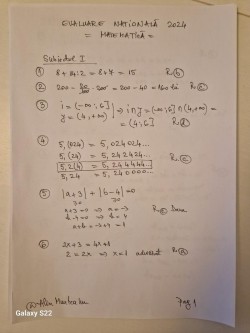 EVALUARE NAȚIONALĂ 2024
= MATEMATICĂ =
Subiectul I
① 8 + 8·4:2 = 8 + = 15 R. ⓑ
② 200 - 20/100 · 200 = 200 - 40 = 160 lei R. ⓒ
③ i = (-∞; 6] ⇒ i ∩ J = (-∞; 6] ∩ (4, +∞) =
J = (4, +∞) = (4; 6] R. ⓓ
④ 5,(024) = 5,024024...
5,(24) = 5,242424...
5,2(4) = 5,24444... R.
5,24 = 5,240000...
⑤ |a+3| + |b-4| = 0
a+3 = 0 ⇒ a = -3 R.
b-4 = 0 ⇒ b = 4
⑥ 2x+3 = 4x+1
2 = 2x ⇒ x = 1 R. ⓐ
Pag 1
Galaxy S22